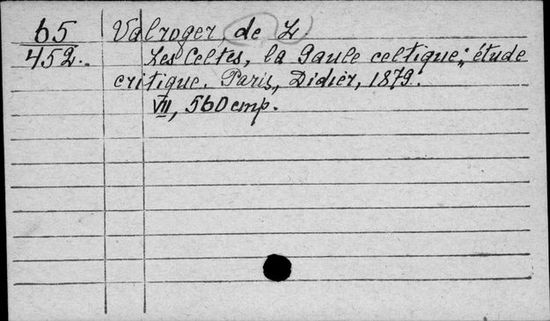 65 Valroger de L
452. Les Celtes, la Gaule celtique; étude
critique. Paris, Didier, 1879.
VII, 560 cmp.